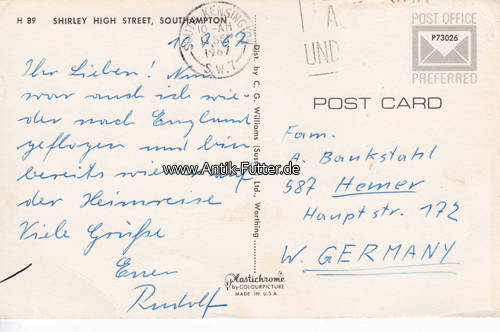 H 89 SHIRLEY HIGH STREET, SOUTHAMPTON
10.9.67
Ihr Lieben! Nun
war auch ich wie-
der nach England
geflogen und bin
bereits wieder auf
der Heimreise
Viele Grüße
Euer
Rudolf
SOUTH KENSINGTON
10-AM
1967
S.W.7
A
UND
Dist. by C. G. Williams (Sussex) Ltd., Worthing
Plastichrome
by COLOURPICTURE
MADE IN U.S.A.
POST OFFICE
P73026
PREFERRED
POST CARD
Fam.
A. Bankstahl
587 Hemer
Hauptstr. 172
W. GERMANY
www.Antik-Futter.de